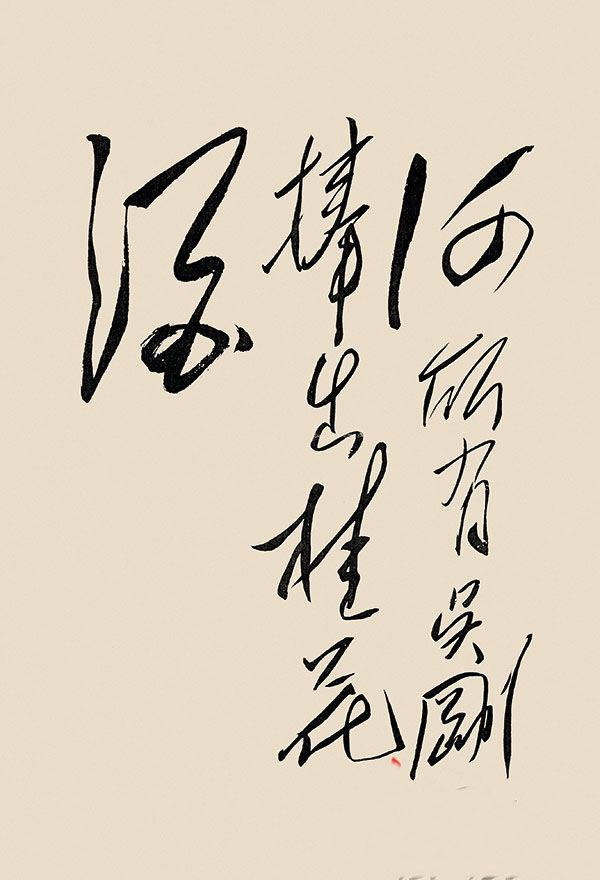 何所有吴刚
捧出桂花
酒